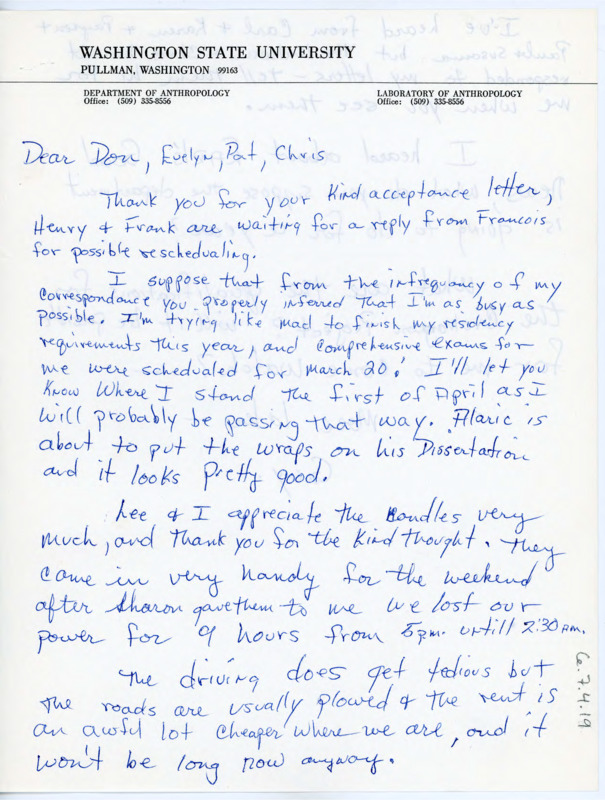 WASHINGTON STATE UNIVERSITY
PULLMAN, WASHINGTON 99163
DEPARTMENT OF ANTHROPOLOGY
Office: (509) 335-8556
LABORATORY OF ANTHROPOLOGY
Office: (509) 335-8556
Dear Don, Evelyn, Pat, Chris
Thank you for your Kind acceptance letter,
Henry & Frank are waiting for a reply from Francois
for possible reschedualing.
I suppose that from the infrequancy of my
correspondance you properly inferred that I'm as busy as
possible. I'm trying like mad to finish my residency
requirements this year, and comprehensive exams for
me were schedualed for March 20! I'll let you
Know Where I stand the first of April as I
will probably be passing that way. Alaric is
about to put the wraps on his Dissertation
and it looks Pretty good.
Lee & I appreciate the Candles very
much, and Thank you for the Kind thought. They
came in very handy for the weekend
after Sharon gave them to me we lost our
power for 9 hours from 5pm. untill 2:30 AM.
The driving does get tedious but
the roads are usually plowed & the rent is
an awful lot cheaper where we are, and it
won't be long now anyway.
6.7.4.19